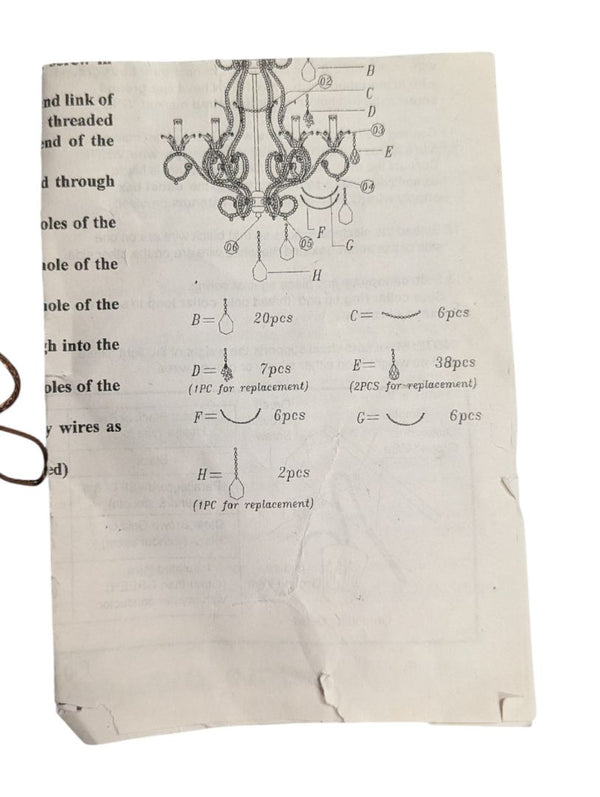 nd link of
threaded
end of the
d through
oles of the
hole of the
hole of the
gh into the
oles of the
y wires as
ed)
B
02
C
D
03
E
04
F
G
06
05
H
B= 20pcs
C= 6pcs
D= 7pcs
(1PC for replacement)
E= 38pcs
(2PCS for replacement)
F= 6pcs
G= 6pcs
H= 2pcs
(1PC for replacement)